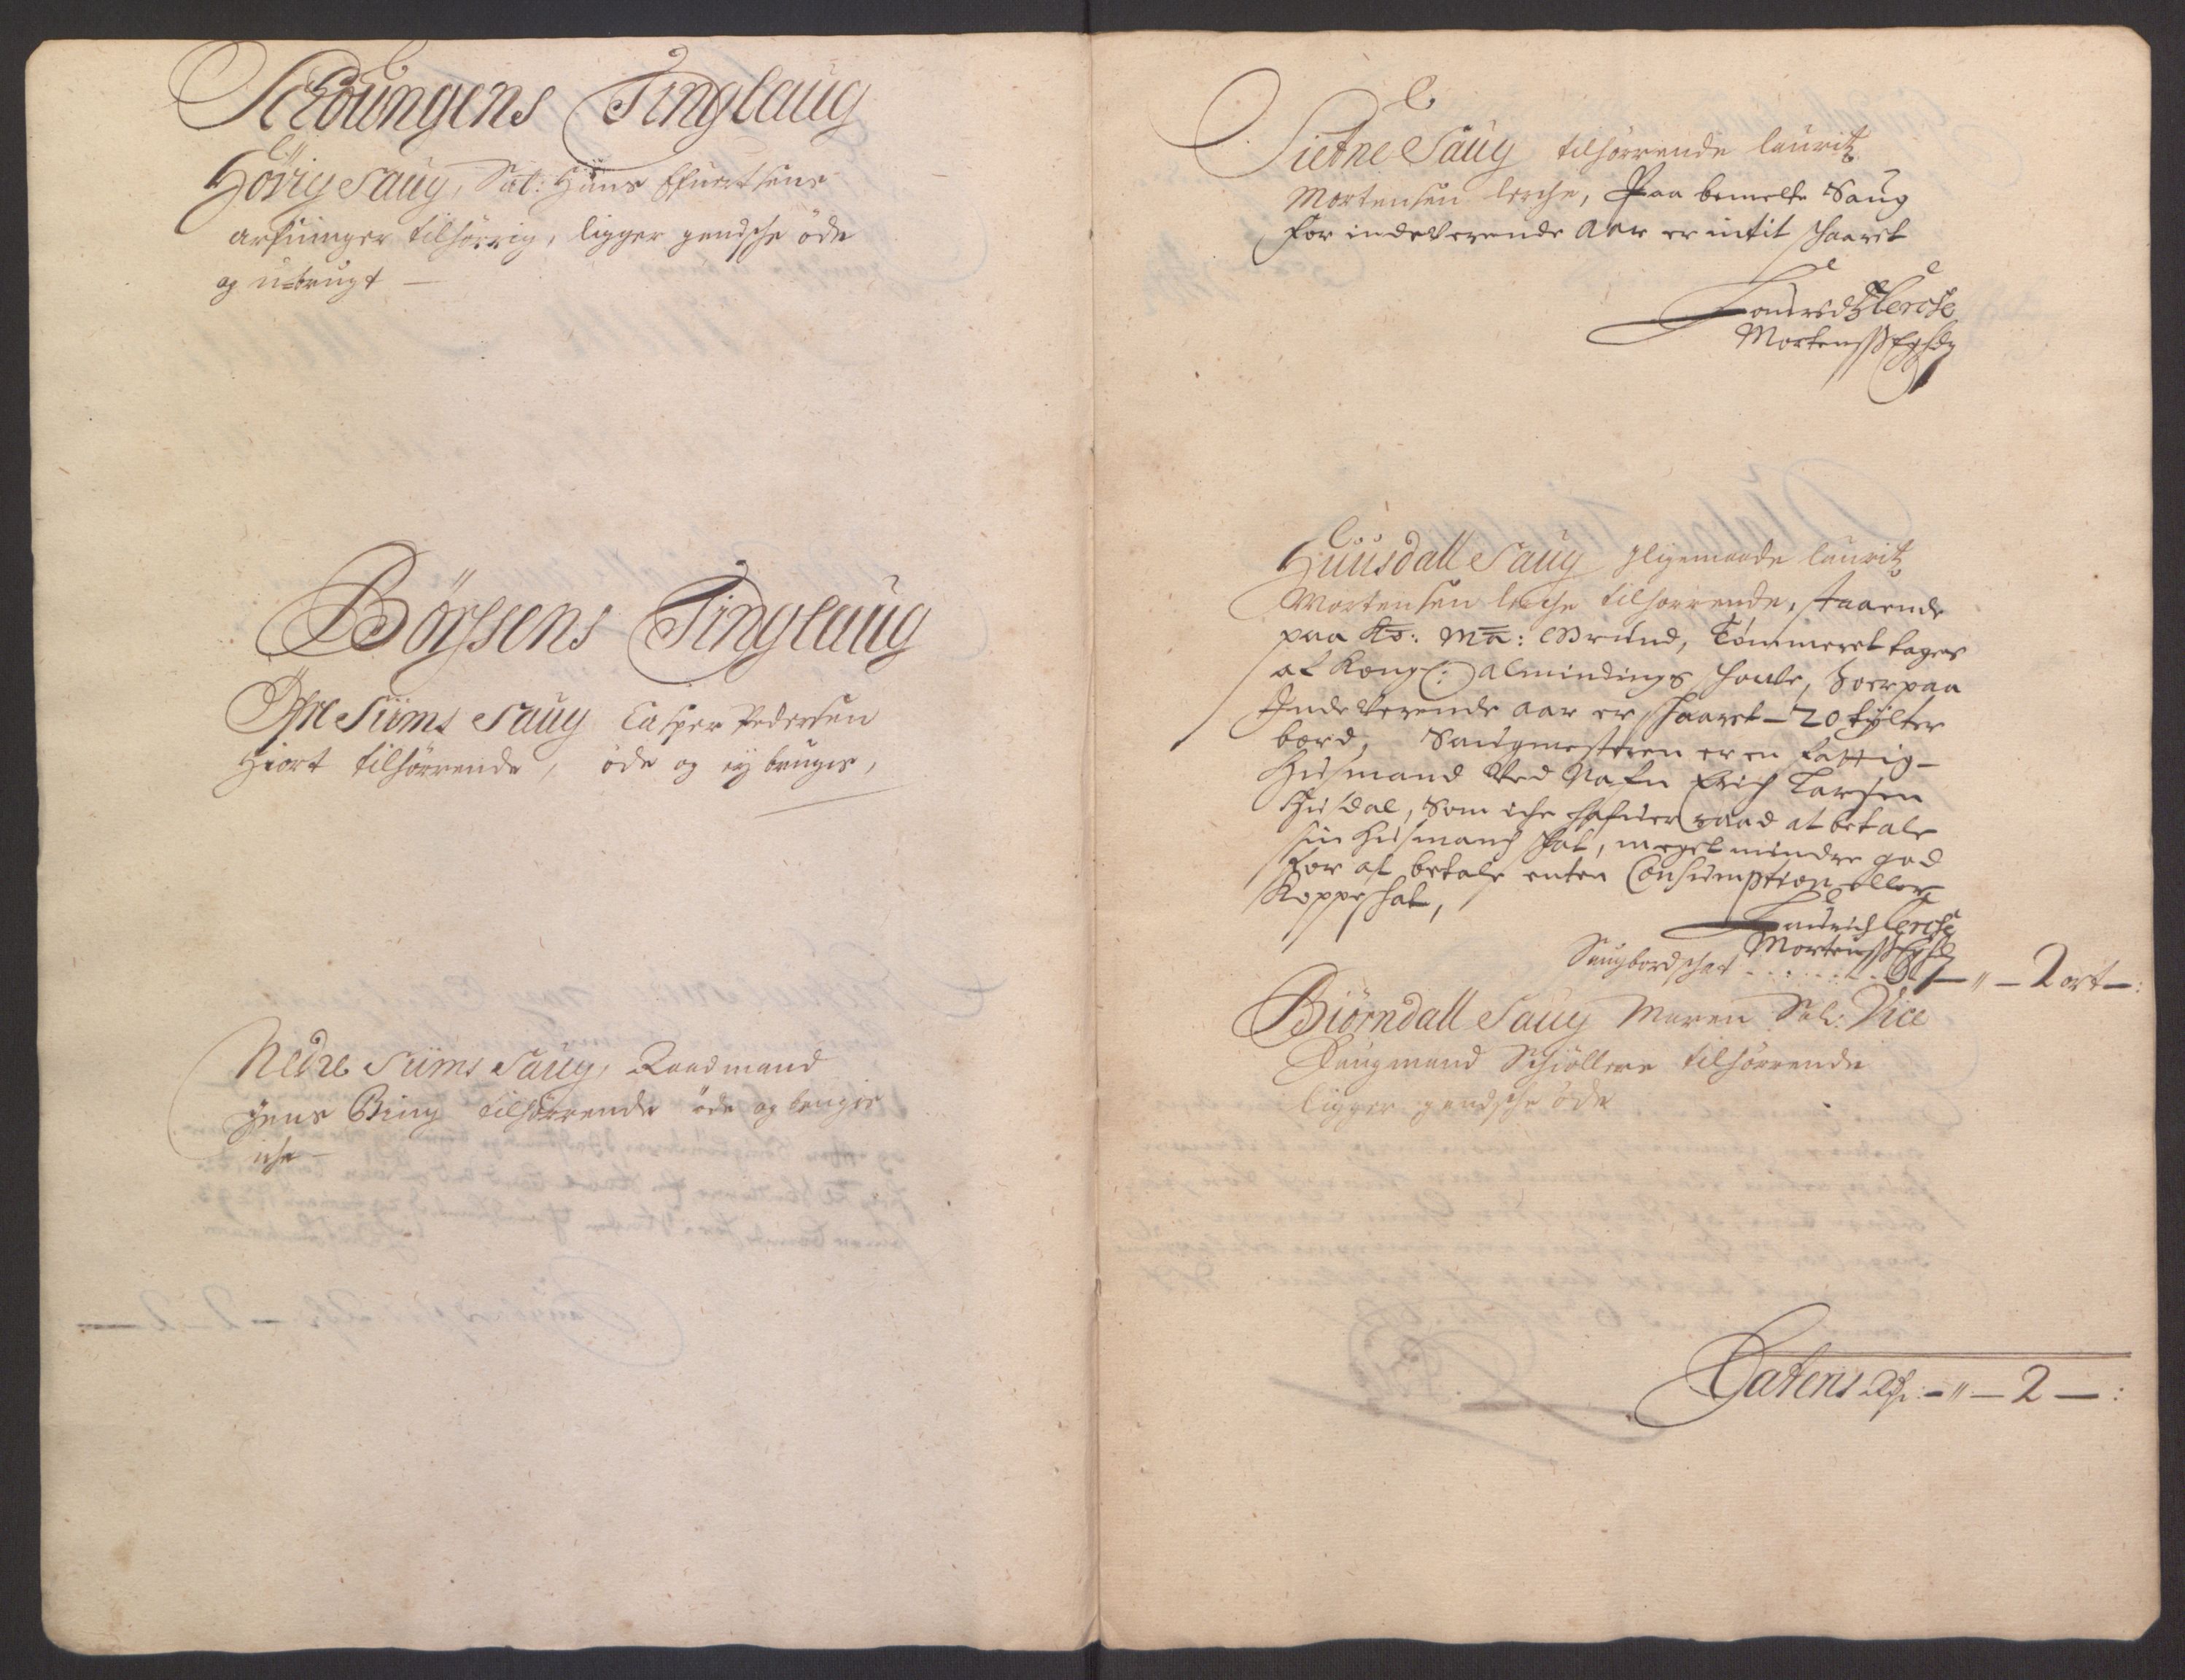 Tinglaug
Høvig Saug, Sal: Hans Efuertsens
arfuinger tilhørrig, ligger gandsche øde
og u=brugt —
Børssens Tinglaug
Øfre Siims Saug Casper Pedersen
Hiort tilhørrende, øde og ey bruges,
Nedre Siims Saug, Raadmand
Jens Bing tilhørrende øde og bruges
iche —
Sietne Saug tilhørrende lauritz
Mortensen lerche, Paa bemelte Saug
for indeverende Aar er intit schaaret
Lauridz Lerche
Mortenss Eghdn
Huusdall Saug ligemaade lauritz
Mortensen lerche tilhørrende, staaende
paa Ko: Ma: Grund, Tømmeret tages
af Kongl: Almindings schoufe, Hvorpaa
Indeverende aar er schaaret — 20 tylter
bord, Saugmesteren er en fattig —
Husmand Ved Nafn Erich Larsen
Husdal, Som iche hafuer raad at betale
sin Husmands schat, meget mindre god
for at betale enten Consumption eller
Koppeschat,
Lauridz Lerche
Mortenss Eghdn
Saugbordschat . . . . . . — " — 2 ort — :
Biørndall Saug Maren Sal: Vice
Laugmand Schiøllers tilhørrende
ligger gandsche øde
Lateris Rdr: — " — 2 — :